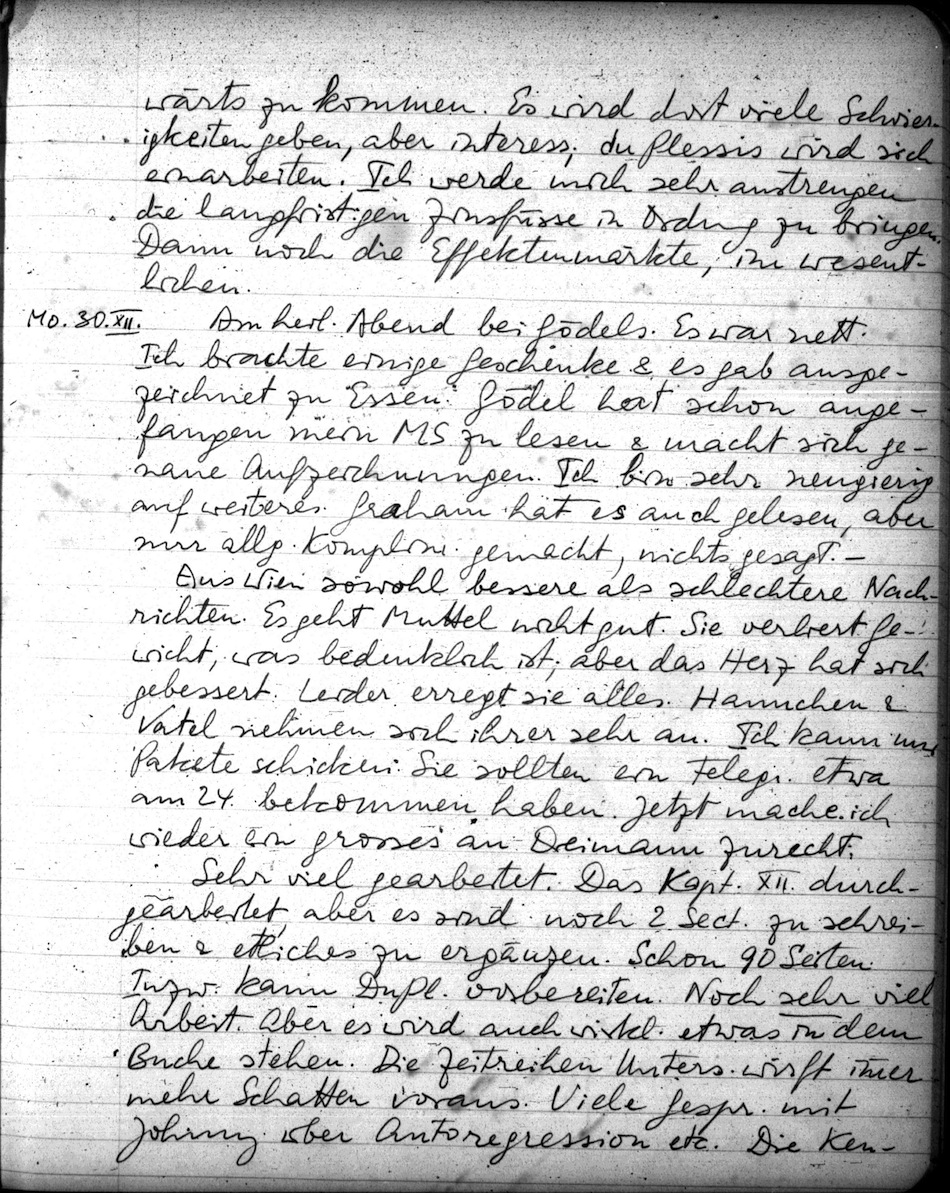 wärts zu kommen. Es wird dort viele Schwier-
igkeiten geben, aber interess; du Plessis wird sich
einarbeiten. Ich werde mich sehr anstrengen
die langfristigen Zinsfüsse in Ordnung zu bringen.
Dann noch die Effektenmärkte, im wesent-
lichen.
Mo. 30. XII. Am heil. Abend bei Gödels. Es war nett.
Ich brachte einige Geschenke & es gab ausge-
zeichnet zu Essen. Gödel hat schon ange-
fangen mein MS zu lesen & macht sich ge-
naue Aufzeichnungen. Ich bin sehr neugierig
auf weiteres. Graham hat es auch gelesen, aber
nur allg. Komplim. gemacht, nichts gesagt. –
Aus Wien sowohl bessere als schlechtere Nach-
richten. Es geht Muttel nicht gut. Sie verliert Ge-
wicht, was bedenklich ist; aber das Herz hat sich
gebessert. Leider erregt sie alles. Hannchen &
Vatel nehmen sich ihrer sehr an. Ich kann nur
Pakete schicken. Sie sollten ein Telegr. etwa
am 24. bekommen haben. Jetzt mache ich
wieder ein grosses an Dreimann zurecht.
Sehr viel gearbeitet. Das Kapt. XII. durch-
gearbeitet, aber es sind noch 2 Sect. zu schrei-
ben & etliches zu ergänzen. Schon 90 Seiten.
Inzw. kann DuPl. vorbereiten. Noch sehr viel
Arbeit. Aber es wird auch wirkl. etwas in dem
Buche stehen. Die Zeitreihen Unters. wirft imer
mehr Schatten voraus. Viele Gespr. mit
Johnny über Autoregression etc. Die Ken-